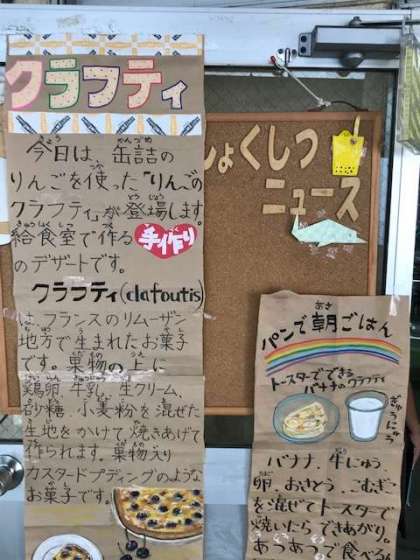 クラフティ
今日は、缶詰の
りんごを使った「りんごの
クラフティ」が登場します。
給食室で作る手作り
のデザートです。
クラフティ(clafoutis)
は、フランスのリムーザン
地方で生まれたお菓子
です。果物の上に
鶏卵、牛乳、生クリーム、
砂糖、小麦粉を混ぜた
生地をかけて焼きあげて
作られます。果物入り
カスタードプディングのような
お菓子です。
しょくしつ
ニュース
パンで朝ごはん
トースターでできる
バナナのクラフティ
ぎゅうにゅう
バナナ、牛にゅう
卵、おさとう、こむぎこ
を混ぜてトースターで
焼いたらできあがり。
あつあつで食べる